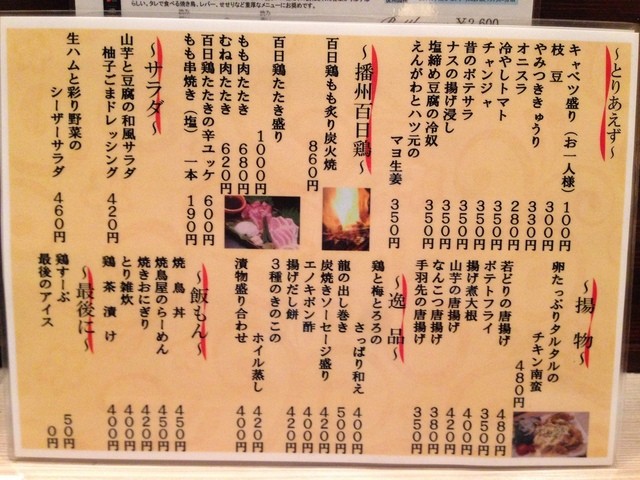 〜とりあえず〜
キャベツ盛り（お一人様）100円
枝豆 300円
やみつききゅうり 330円
オニスラ 280円
冷やしトマト 350円
チャンジャ 350円
昔のポテサラ 350円
ナスの揚げ浸し 350円
塩締め豆腐の冷奴 350円
えんがわとハツ元の
マヨ生姜 350円
〜播州百日鶏〜
百日鶏もも炙り炭火焼
860円
百日鶏たたき盛り
1000円
もも肉たたき 680円
むね肉たたき 620円
百日鶏たたきの辛ユッケ 600円
もも串焼き（塩）一本 190円
〜サラダ〜
山芋と豆腐の和風サラダ
柚子ごまドレッシング 420円
生ハムと彩り野菜の
シーザーサラダ 460円
〜揚物〜
卵たっぷりタルタルの
チキン南蛮
480円
若どりの唐揚げ 480円
ポテトフライ 350円
揚げ煮大根 400円
山芋の唐揚げ 420円
なんこつ唐揚げ 380円
手羽先の唐揚げ 350円
〜逸品〜
鶏と梅とろろの
さっぱり和え 400円
龍の出し巻き 500円
炭焼きソーセージ盛り 420円
エノキポン酢 400円
揚げだし餅 420円
3種のきのこの
ホイル蒸し 420円
漬物盛り合わせ 400円
〜飯もん〜
焼鳥丼 450円
焼鳥屋のらーめん 450円
焼きおにぎり 420円
とり雑炊 400円
鶏茶漬け 400円
〜最後に〜
鶏すーぷ 50円
最後のアイス 0円